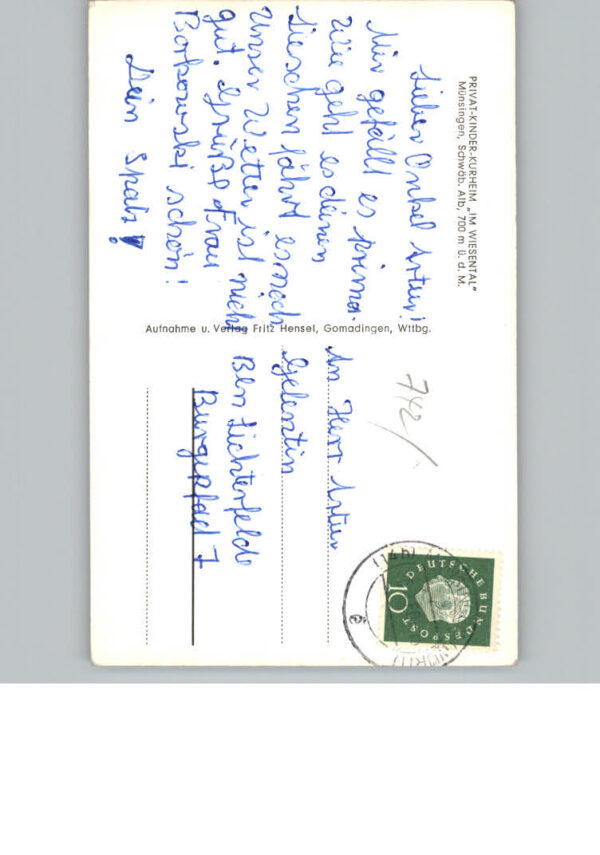 PRIVAT-KINDER-KURHEIM „IM WIESENTAL"
Münsingen, Schwäb. Alb, 700 m ü. d. M.
Lieber Onkel Artur!
Mir gefällt es prima.
Wie geht es deinen
Lieschen fährt es mich
Unser Wetter ist nich
gut. Grüße Frau
Borkowski schön!
Dein Spatz!
Aufnahme u. Verlag Fritz Hensel, Gomadingen, Wttbg.
742/
An Herr Artur
Gelentin
Ben Lichterfelde
Burgpfad 7
DEUTSCHE BUNDESPOST
10
e